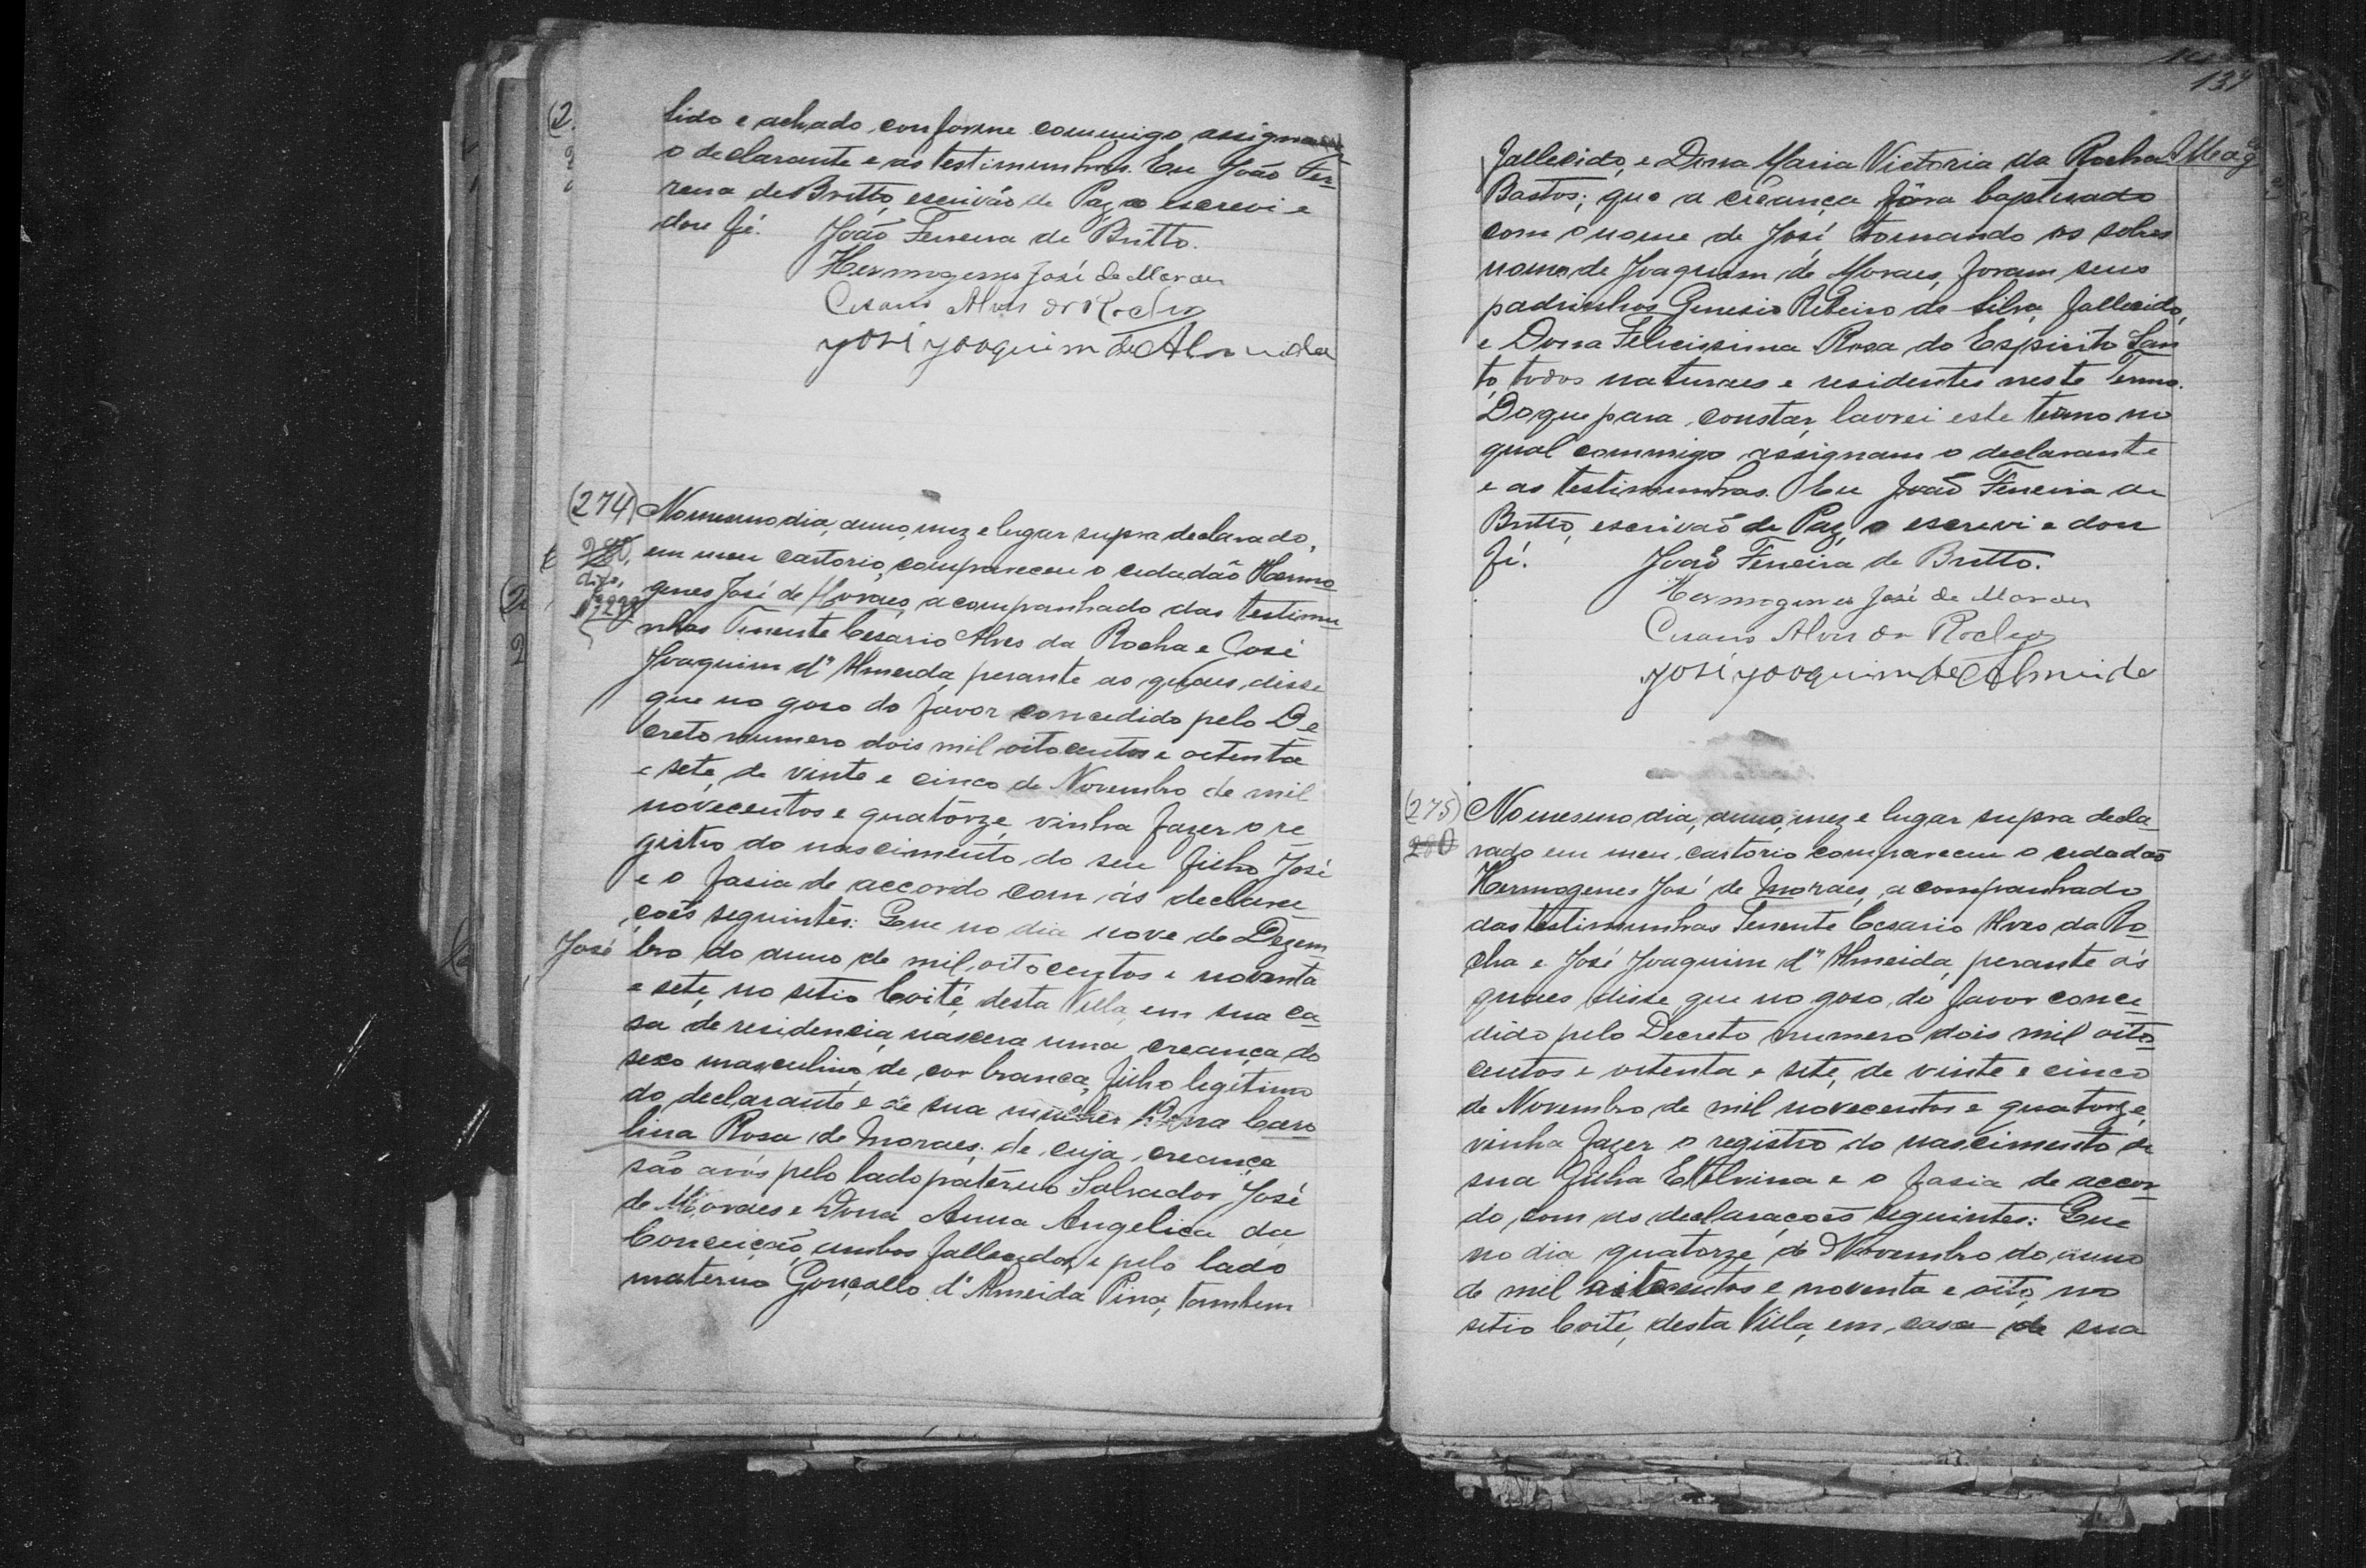 lido e achado conforme commigo assignam
o declarante e as testimunhas. Eu João Fer-
reira de Britto, escrivão de Paz, o escrevi e
dou fé. João Ferreira de Britto.
Hermogenes José de Moraes
Cesario Alves da Rocha
José Joaquim de Almeida
(274) No mesmo dia, anno, mez e lugar supra declarado,
em meu cartorio, compareceu o cidadão Hermo-
genes José de Moraes, acompanhado das testimu-
nhas Tenente Cesario Alves da Rocha e José
Joaquim d'Almeida, perante as quaes, disse
que no goso do favor concedido pelo De-
creto numero dois mil oitocentos e oitenta
e sete, de vinte e cinco de Novembro de mil
novecentos e quatorze, vinha fazer o re-
gistro do nascimento do seu filho José
e o fasia de accordo com as declara-
ções seguintes: Que no dia nove de Dezem-
José
bro do anno de mil, oitocentos e noventa
e sete, no sitio Coité, desta Villa, em sua ca-
sa de residencia, nascera uma creança do
sexo masculino, de cor branca, filho legitimo
do declarante e de sua mulher Dona Caro-
lina Rosa de Moraes; de cuja creança
são avós pelo lado paterno Salvador José
de Moraes e Dona Anna Angelica da
Conceição, ambos fallecidos, e pelo lado
materno Gonçallo d'Almeida Pina, tambem
137
fallecido, e Dona Maria Victoria da Rocha
Bastos; que a creança fôra baptisado
com o nome de José tomando os sobre
nomes de Joaquim de Moraes, foram seus
padrinhos Genesio Ribeiro da Silva, fallecido,
e Dona Felicissima Rosa do Espirito San-
to, todos naturaes e residentes neste Termo.
Do que para constar, lavrei este termo no
qual commigo assignam o declarante
e as testimunhas. Eu João Ferreira de
Britto, escrivão de Paz, o escrevi e dou
fé. João Ferreira de Britto.
Hermogenes José de Moraes
Cesario Alves da Rocha
José Joaquim de Almeida
(275) No mesmo dia, anno, mez e lugar supra decla-
280 rado em meu cartorio compareceu o cidadão
Hermogenes José de Moraes, acompanhado
das testimunhas Tenente Cesario Alves da Ro-
cha e José Joaquim d'Almeida, perante as
quaes disse que no goso do favor conce-
dido pelo Decreto numero dois mil oito-
centos e oitenta e sete, de vinte e cinco
de Novembro de mil novecentos e quatorze,
vinha fazer o registro do nascimento de
sua filha Etelvina e o fasia de accor-
do com as declarações seguintes: Que
no dia quatorze de Novembro do anno
de mil oitocentos e noventa e oito, no
sitio Coité, desta Villa, em casa de sua